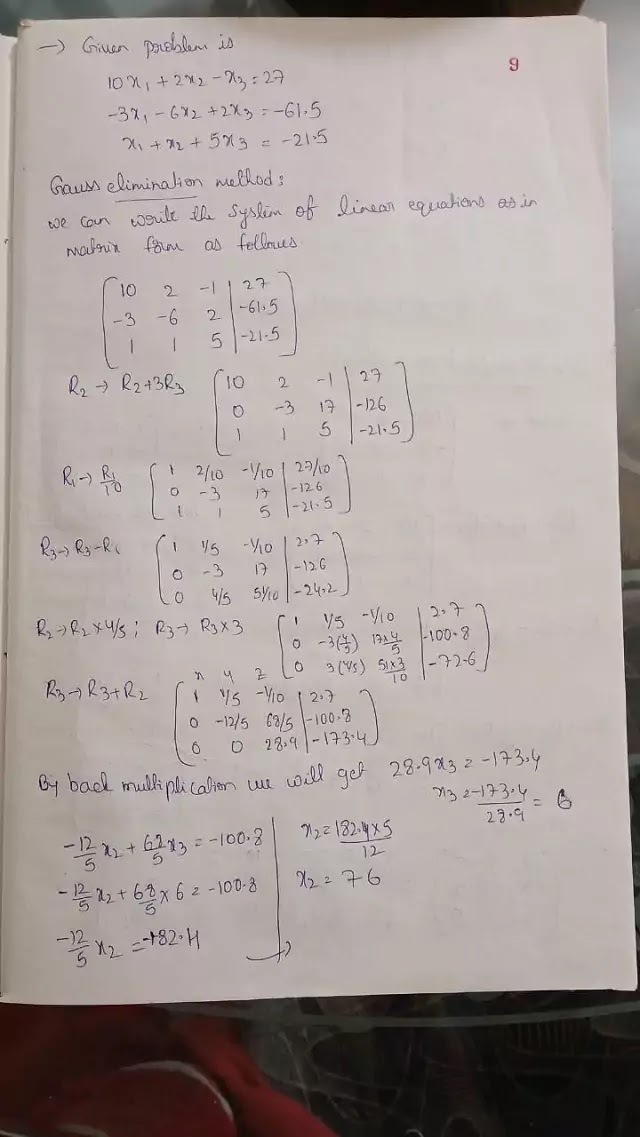 → Given problem is
9
10x₁ + 2x₂ - x₃ = 27
-3x₁ - 6x₂ + 2x₃ = -61.5
x₁ + x₂ + 5x₃ = -21.5
Gauss elimination method:
we can write the system of linear equations as in
matrix form as follows
10 2 -1 | 27
-3 -6 2 | -61.5
1 1 5 | -21.5
R₂ → R₂+3R₃
10 2 -1 | 27
0 -3 17 | -126
1 1 5 | -21.5
R₁ → R₁/10
1 2/10 -1/10 | 27/10
0 -3 17 | -126
1 1 5 | -21.5
R₃ → R₃-R₁
1 1/5 -1/10 | 2.7
0 -3 17 | -126
0 4/5 51/10 | -24.2
R₂ → R₂ × 4/5 ; R₃ → R₃ × 3
1 1/5 -1/10 | 2.7
0 -3(4/5) 17×4/5 | -100.8
0 3(4/5) 51×3/10 | -72.6
x y z
R₃ → R₃+R₂
1 1/5 -1/10 | 2.7
0 -12/5 68/5 | -100.8
0 0 28.9 | -173.4
By back multiplication we will get 28.9x₃ = -173.4
x₃ = -173.4/28.9 = 6
-12/5 x₂ + 68/5 x₃ = -100.8
-12/5 x₂ + 68/5 × 6 = -100.8
-12/5 x₂ = -182.4
x₂ = 182.4×5/12
x₂ = 76